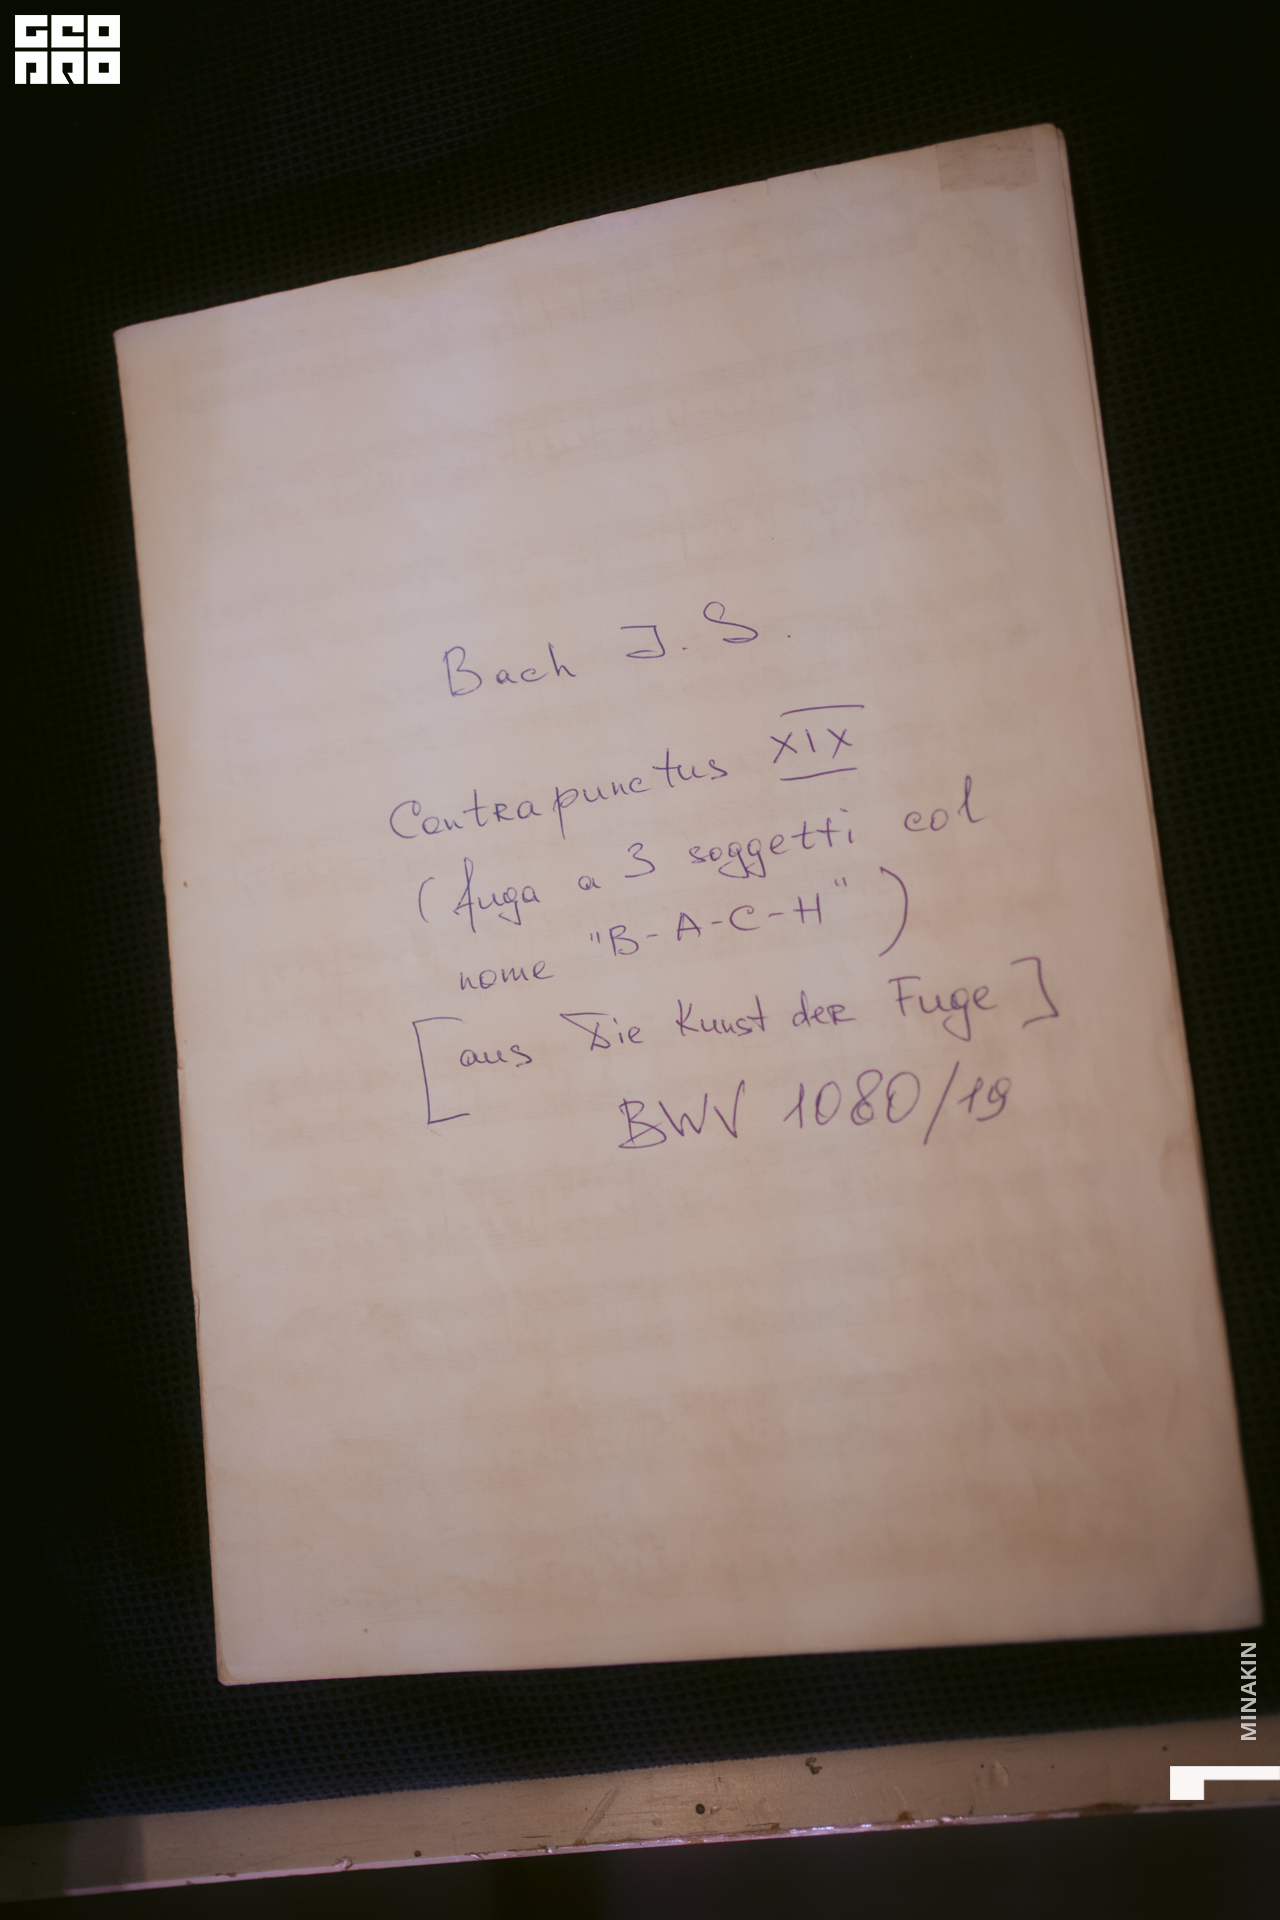 GEO
PRO
Bach J. S.
Contrapunctus XIX
(fuga a 3 soggetti col
nome "B-A-C-H")
[aus Die Kunst der Fuge]
BWV 1080/19
MINAKIN